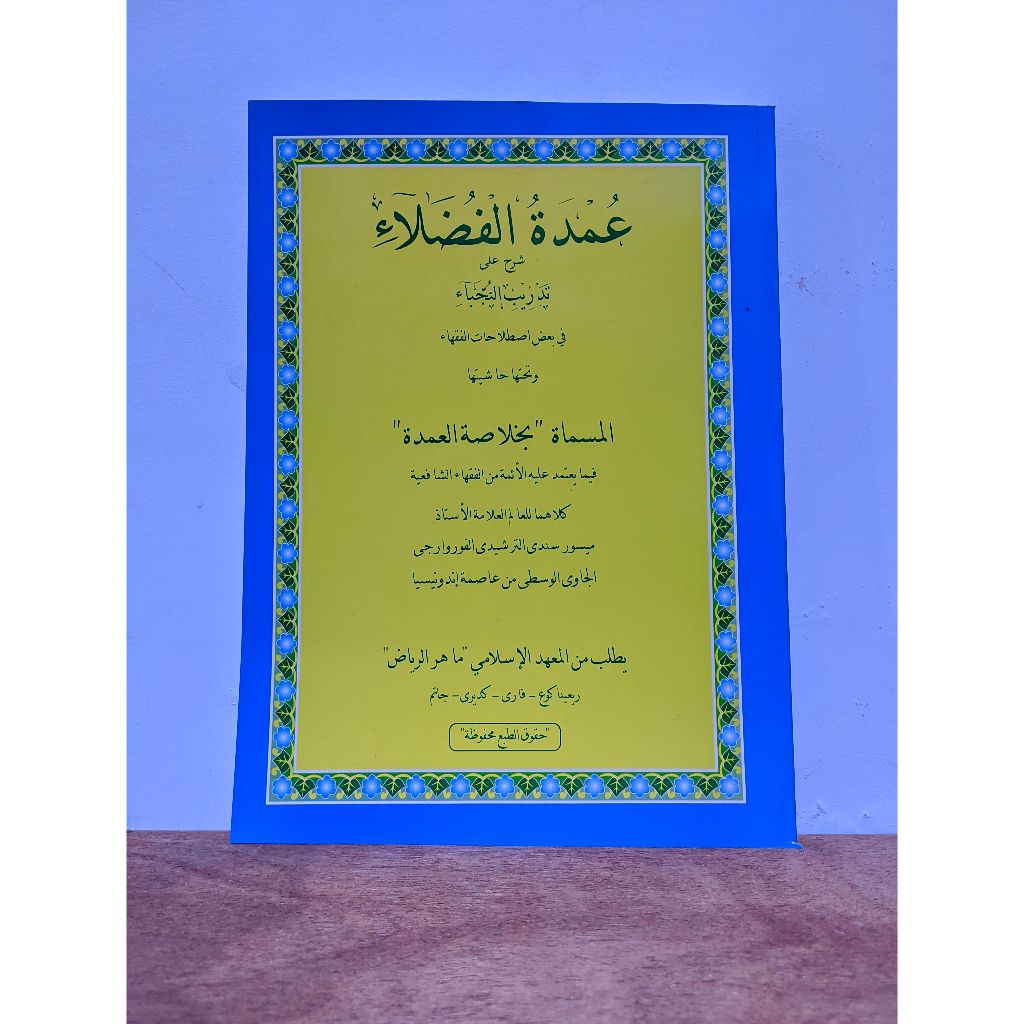 عُمْدَةُ الْفُضَلَآءِ
شرح على
تَدْرِيْبِ النُّجَبَآءِ
في بعض اصطلاحات الفقهاء
وتحتها حاشيتها
المسماة "بخلاصة العمدة"
فيما يعتمد عليه الأئمة من الفقهاء الشافعية
كلاهما للعالم العلامة الأستاذ
ميسور سندى الترشيدى الفوروارجى
الجاوى الوسطى من عاصمة إندونيسيا
يطلب من المعهد الإسلامي "ماهر الرياض"
ريعيناكوع - فارى - كديرى - جاتم
"حقوق الطبع محفوظة"